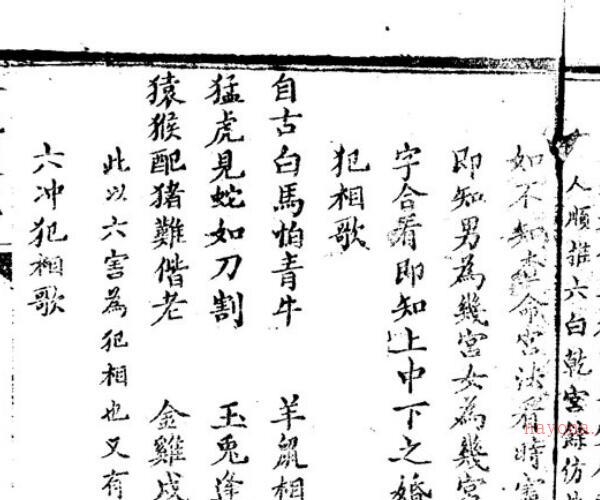 人順推六白乾宮餘仿
如不知本命宮法看時憲
即知男為幾宮女為幾宮
字合看即知上中下之婚
犯相歌
自古白馬怕青牛 羊鼠相
猛虎見蛇如刀割 玉兔逢
猿猴配猪難偕老 金雞戍
此以六害為犯相也又有
六冲犯相歌